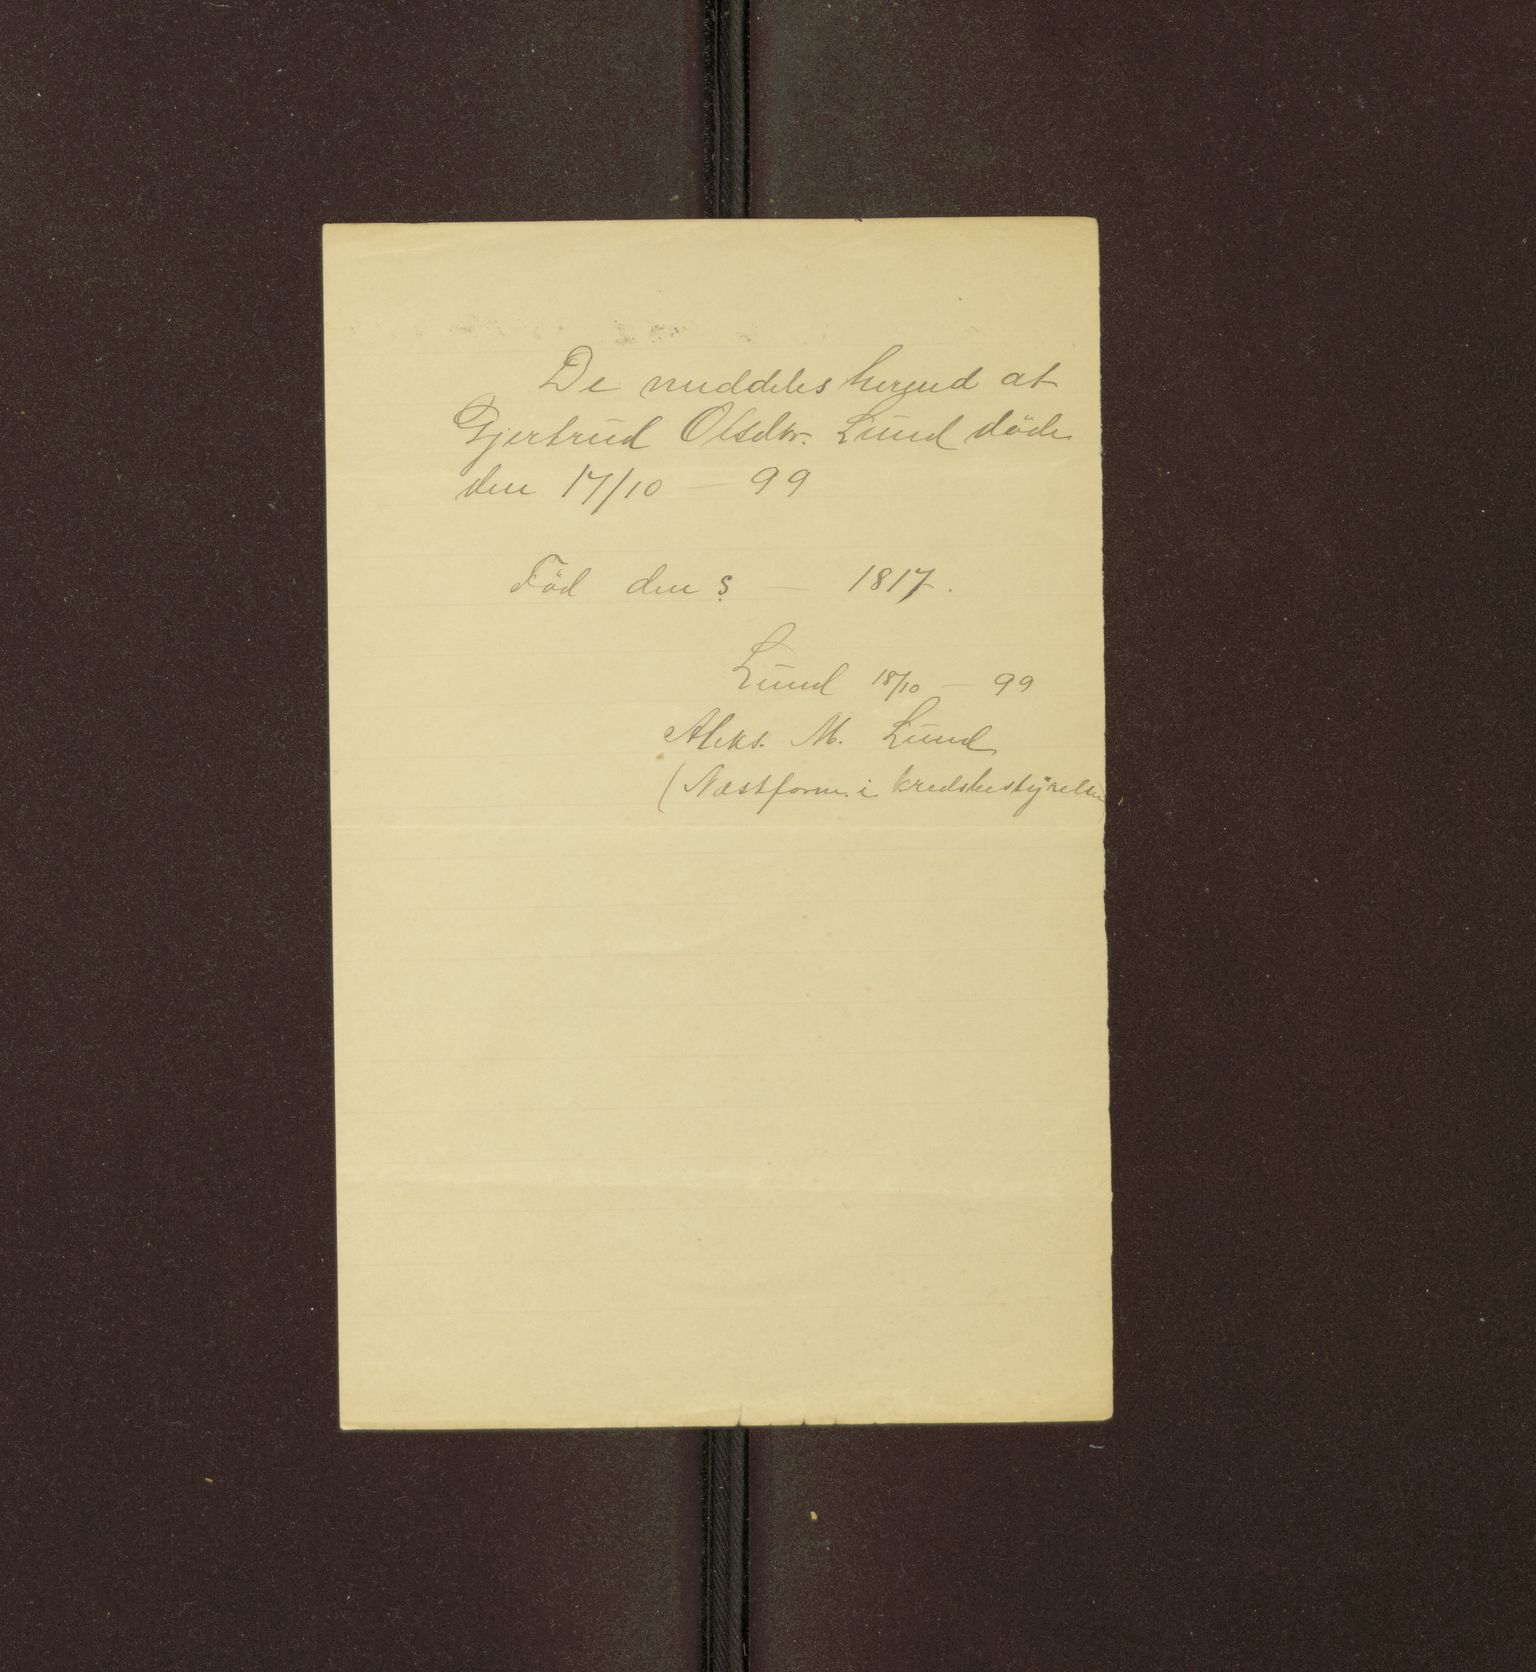 De meddeles herved at
Gjertrud Olsdtr. Lund döde
den 17/10 — 99
Född den ? — 1817.
Lund 18/10 — 99
Aleks. M. Lund
(Næstform. i kredsbestyrelsen)